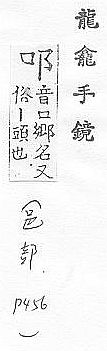 龍龕手鏡
叩
音口鄉名又
俗丨頭也
(邑部.
P456
)